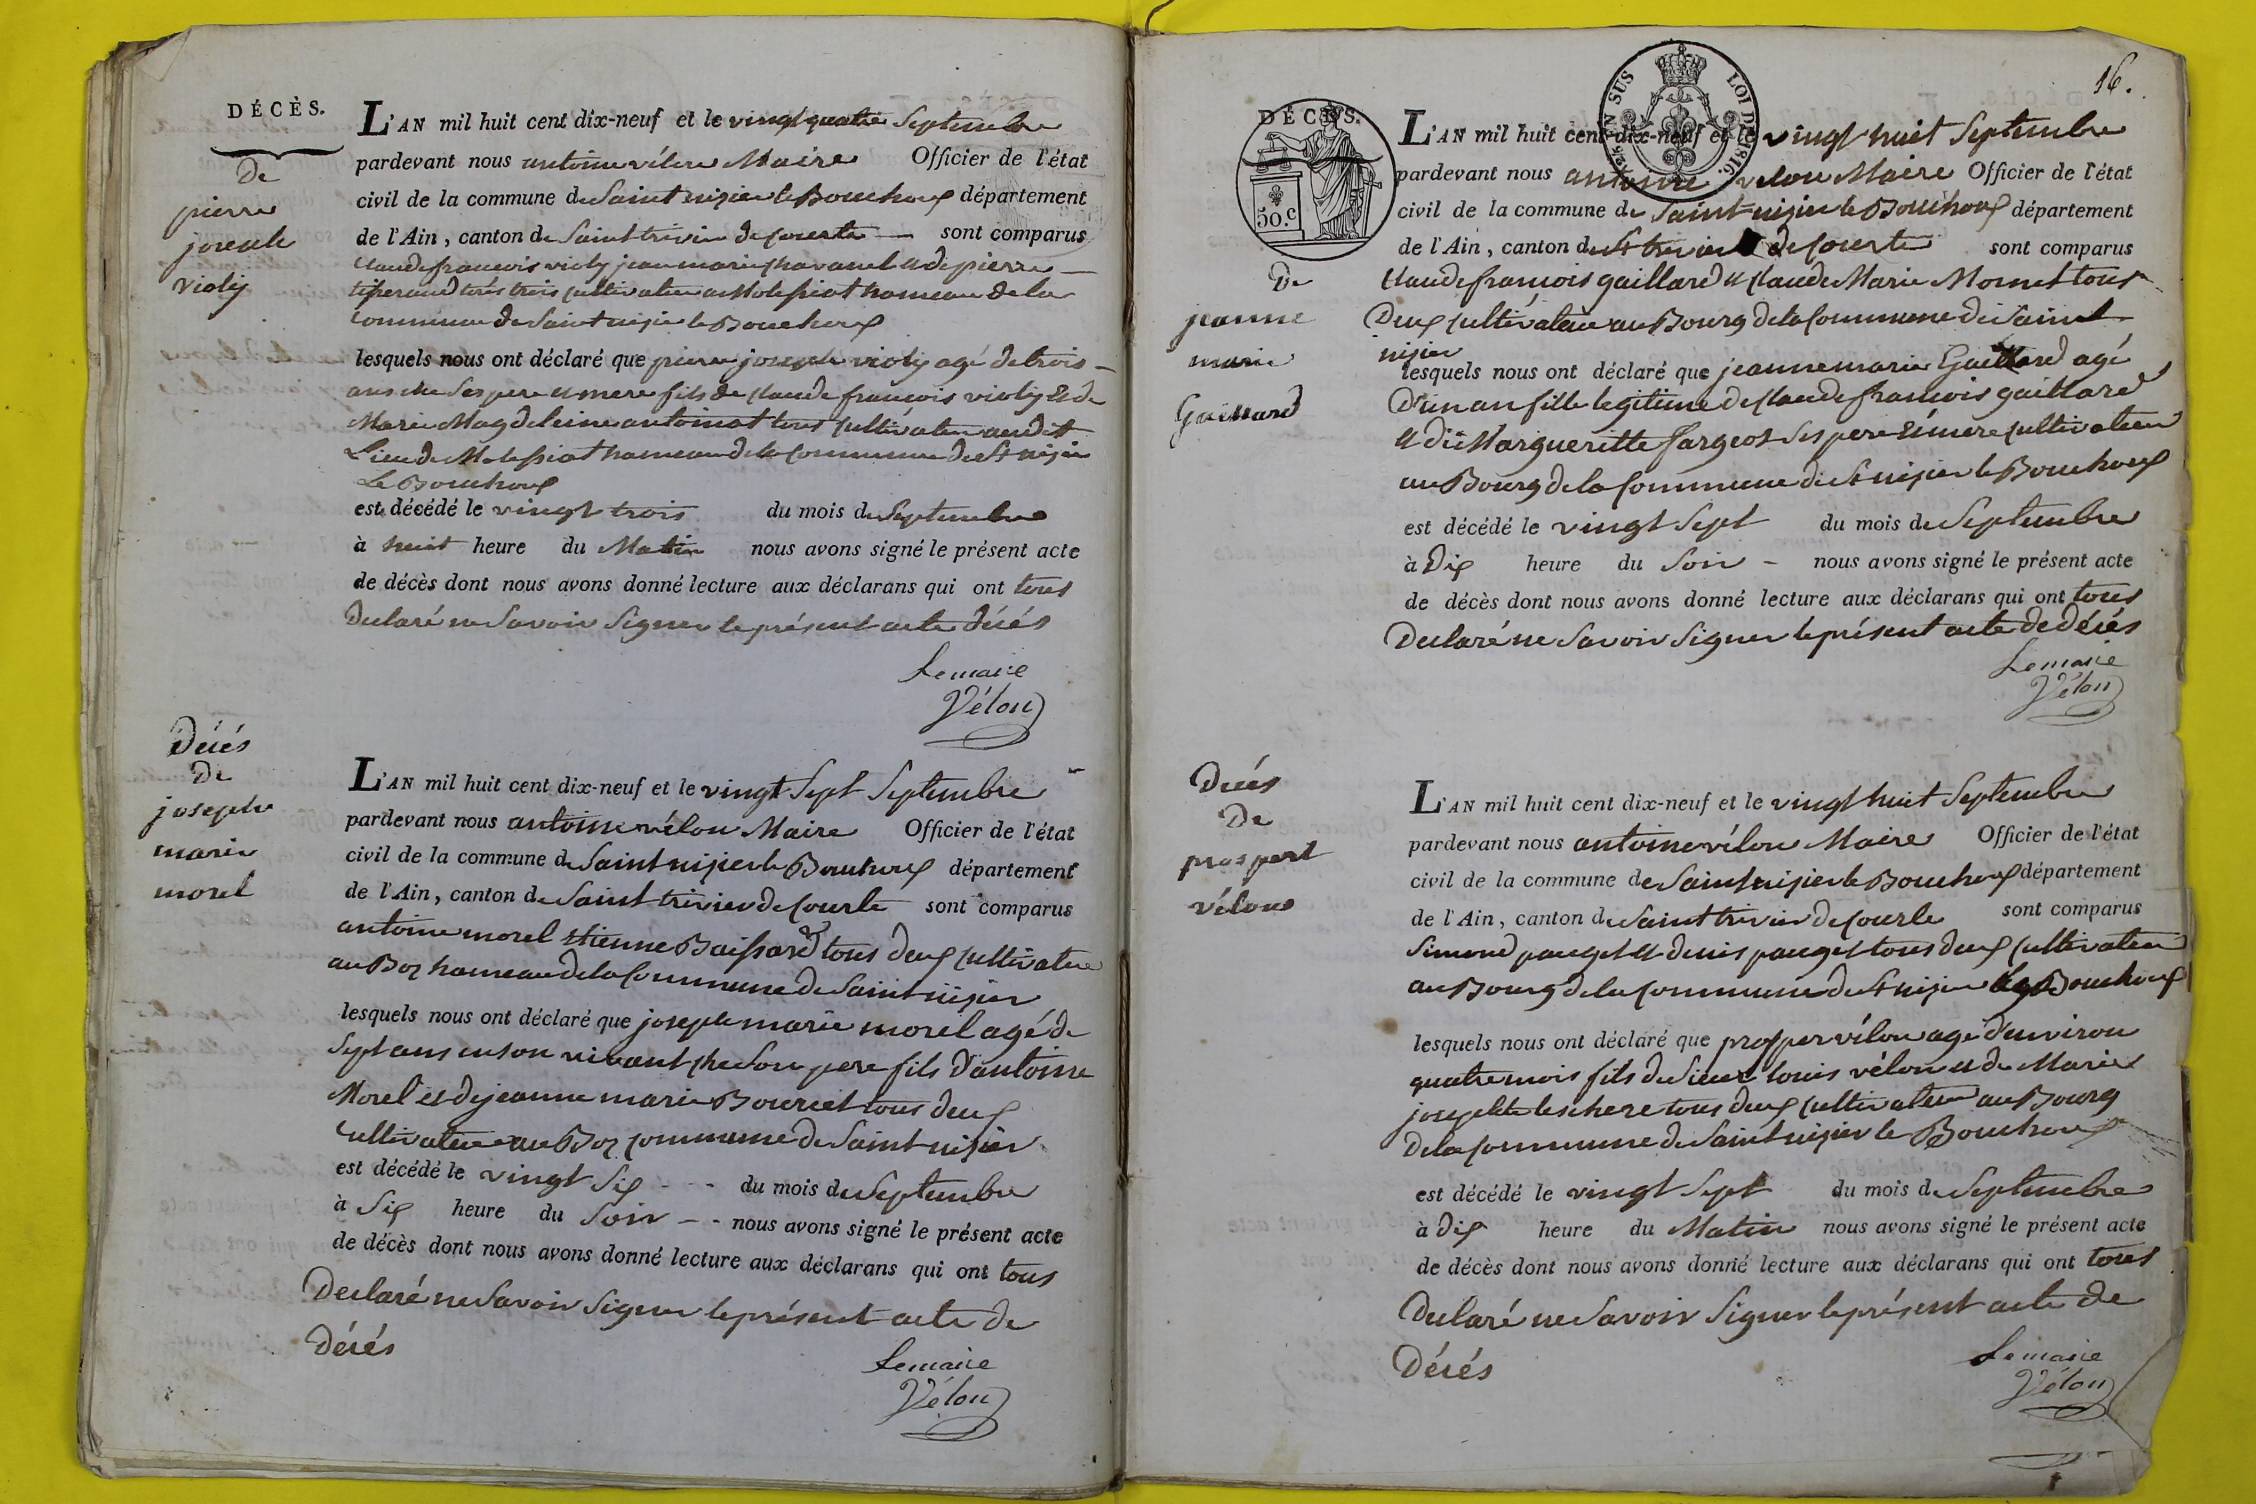 DÉCÈS.
De
pierre
joseph
violy
L'AN mil huit cent dix-neuf et le vingt quatre Septembre
pardevant nous antoine vélon Maire Officier de l'état
civil de la commune de Saint nizier le Bouchoux département
de l'Ain, canton de Saint trivier de Courte sont comparus
Claude francois violy jean marie chavanel et de pierre
tous trois cultivateur a Molissiat hameau de la
Commune de Saint nizier le Bouchoux
lesquels nous ont déclaré que pierre joseph violy agé de trois
ans che Ses pere et mere fils de Claude françois violy et de
Marie Magdeleine antoinat tous cultivateur audit
Lieu de Molissiat hameau de la Commune de St nizier
Le Bouchoux
est décédé le vingt trois du mois de Septembre
à huit heure du Matin nous avons signé le présent acte
de décès dont nous avons donné lecture aux déclarans qui ont tous
Declaré ne Savoir Signer le présent acte décés
Le maire
Vélon
Décés
De
joseph
marie
morel
L'AN mil huit cent dix-neuf et le vingt Sept Septembre
pardevant nous antoine vélon Maire Officier de l'état
civil de la commune de Saint nizier le Bouchoux département
de l'Ain, canton de Saint trivier de Courte sont comparus
antoine morel etienne Baissard tous deux cultivateur
au Boz hameau de la Commune de Saint nizier
lesquels nous ont déclaré que joseph marie morel agé de
Sept ans en son vivant che Son pere fils d'antoine
Morel et de jeanne marie Bouriet tous deux
Cultivateur au Boz Commune de Saint nizier
est décédé le vingt Six du mois de Septembre
à Six heure du Soir nous avons signé le présent acte
de décès dont nous avons donné lecture aux déclarans qui ont tous
Declaré ne Savoir Signer le présent acte de
Décés
Le maire
Vélon
16.
TIMB. EN SUS LOI DE 1816.
DÉCÈS.
50.c
De
jeanne
marie
Gaillard
L'AN mil huit cent dix-neuf et le vingt huit Septembre
pardevant nous antoine vélon Maire Officier de l'état
civil de la commune de Saint nizier le Bouchoux département
de l'Ain, canton de St trivier de Courte sont comparus
Claude françois gaillard et Claude Marie Monet tous
Deux Cultivateur au Bourg de la Commune de Saint
nizier
lesquels nous ont déclaré que jeanne marie Gaillard agé
D'un an fille legitime de Claude françois gaillard
et de Margueritte fargeot Ses pere et mere cultivateur
au Bourg de la Commune de St nizier le Bouchoux
est décédé le vingt Sept du mois de Septembre
à Dix heure du Soir nous avons signé le présent acte
de décès dont nous avons donné lecture aux déclarans qui ont tous
Declaré ne Savoir Signer le présent acte de décés
Le maire
Vélon
Décés
De
prospert
vélon
L'AN mil huit cent dix-neuf et le vingt huit Septembre
pardevant nous antoine vélon Maire Officier de l'état
civil de la commune de Saint nizier le Bouchoux département
de l'Ain, canton de Saint trivier de Courte sont comparus
Simond pauget et denis pauget tous deux Cultivateur
au Bourg de la Commune de St nizier le Bouchoux
lesquels nous ont déclaré que prosper vélon agé d'environ
quatre mois fils de Sieur louis vélon et de Marie
josephte leschere tous deux Cultivateur au Bourg
De la Commune de Saint nizier le Bouchoux
est décédé le vingt Sept du mois de Septembre
à dix heure du Matin nous avons signé le présent acte
de décès dont nous avons donné lecture aux déclarans qui ont tous
Declaré ne Savoir Signer le présent acte de
Décés
Le maire
Vélon